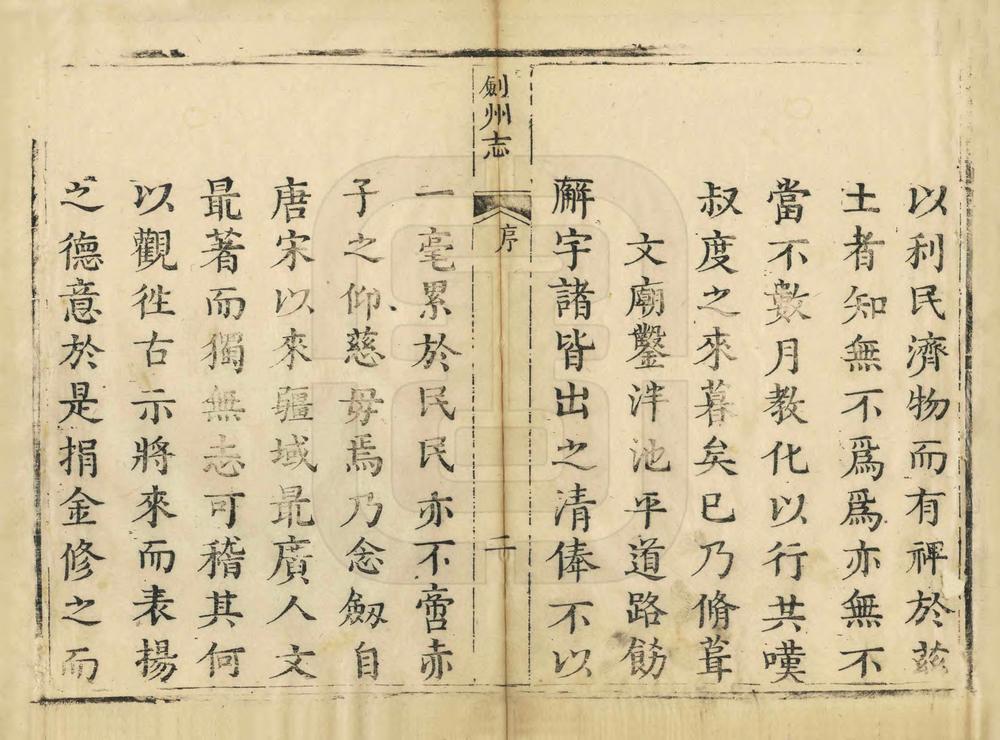 以利民濟物而有裨於茲
土者知無不爲爲亦無不
當不數月教化以行共嘆
叔度之來暮矣已乃脩葺
文廟鑿泮池平道路飭
廨宇諸皆出之清俸不以
劍州志
序
二
一毫累於民民亦不啻赤
子之仰慈毋焉乃念劔自
唐宋以來疆域最廣人文
最著而獨無志可稽其何
以觀徃古示將來而表揚
之德意於是捐金修之而